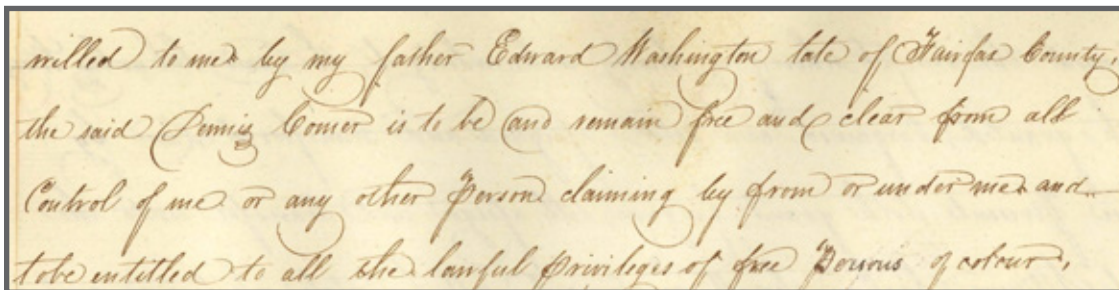 willed to me by my father Edward Washington late of Fairfax County,
the said Dennis Comer is to be and remain free and clear from all
Control of me or any other Person claiming by from or under me and
to be entitled to all the lawful privileges of free Persons of colour,